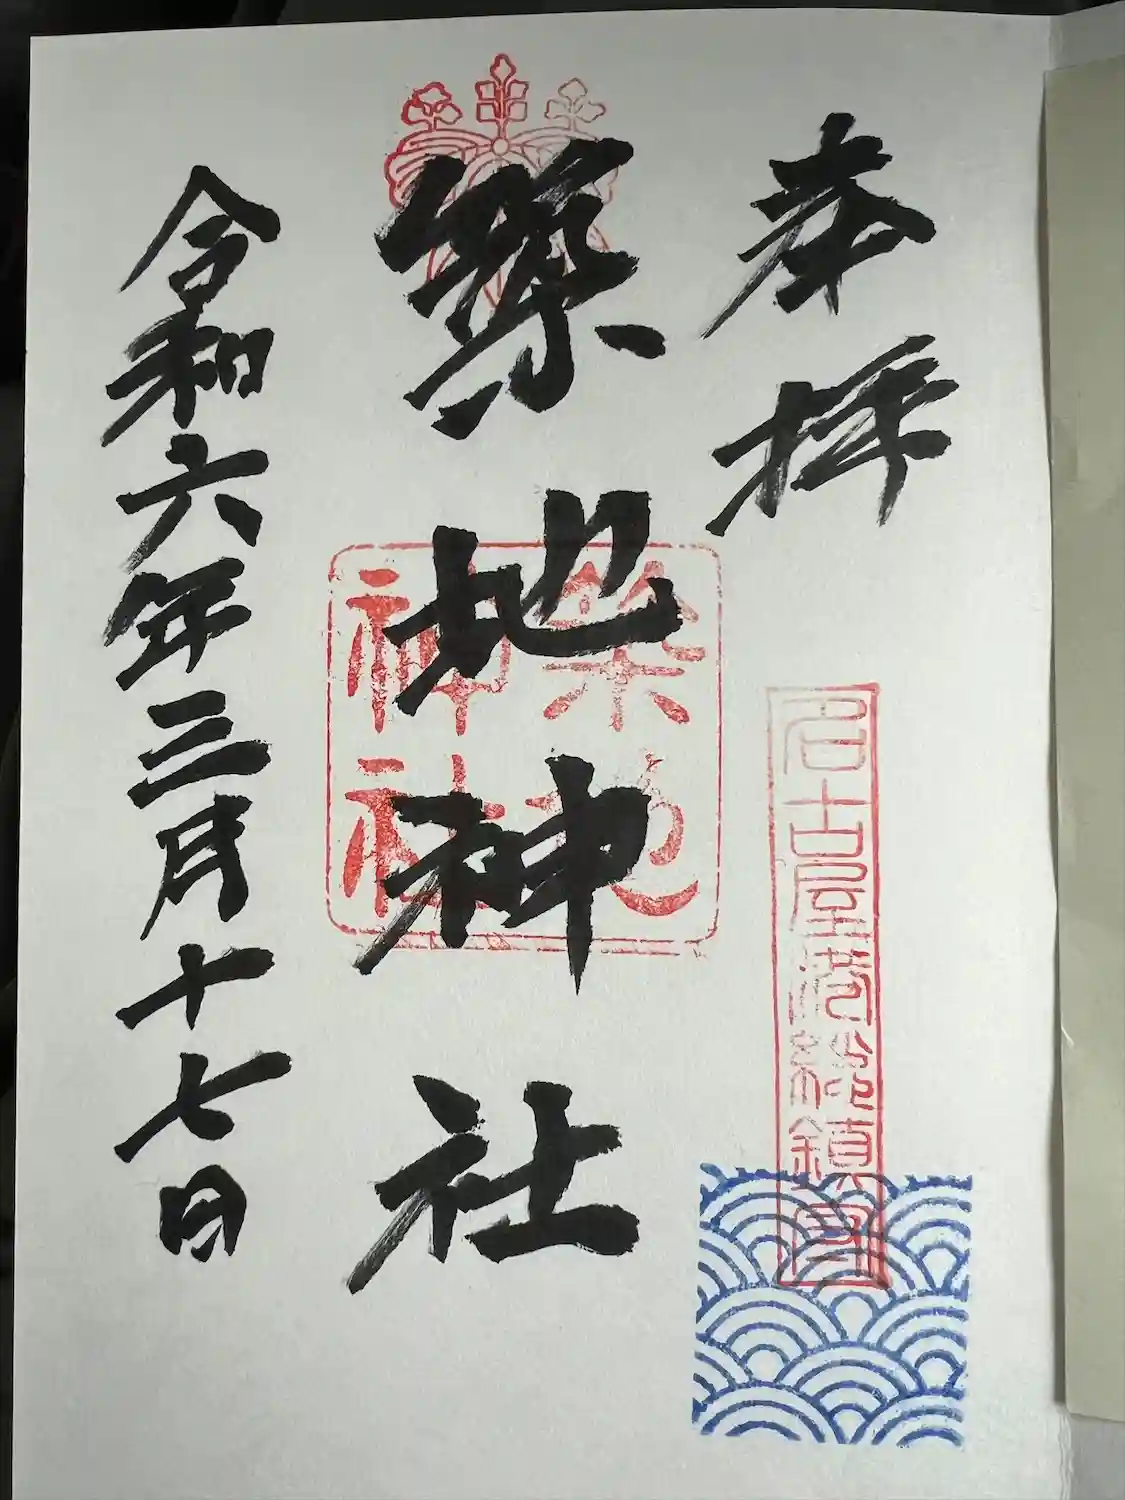 奉拝
名古屋港総鎮守
築地神社
築地神社
令和六年三月十七日